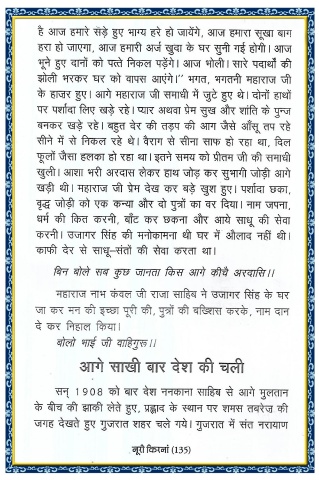 है आज हमारे संड़े हुए भाग्य हरे हो जायेंगे, आज हमारा सूखा बाग
हरा हो जाएगा, आज हमारी अर्ज खुवा के घर सुनी गई होगी। आज
भूने हुए दानों को पत्ते निकल पड़ेंगे। आज भोली। सारे पदार्थों की
झोली भरकर घर को वापस आएंगे।'' भगत, भगतनी महाराज जी
के हाजर हुए। आगे महाराज जी समाधी में जुटे हुए थे। दोनों हाथों
पर पर्शादा लिए खड़े रहे। प्यार अथवा प्रेम सुख और शांति के पुन्ज
बनकर खड़े रहे। बहुत देर की तड़प की आग जैसे आँसू तप रहे
सीने में से निकल रहे थे। वैराग से सीना साफ हो रहा था, दिल
फूलों जैसा हलका हो रहा था। इतने समय को प्रीतम जी की समाधी
खुली। आशा भरी अरदास लेकर हाथ जोड़ कर सुभागी जोड़ी आगे
खड़ी थी। महाराज जी प्रेम देख कर बड़े खुश हुए। पर्शादा छका,
वृद्ध जोड़ी को एक कन्या और दो पुत्रों का वर दिया। नाम जपना,
धर्म की कित करनी, बाँट कर छकना और आये साधू की सेवा
करनी। उजागर सिंह की मनोकामना थी घर में औलाद नहीं थी।
काफी देर से साधू-संतों की सेवा करता था।
बिन बोले सब कुछ जानता किस आगे कीचै अरवासि।।
महाराज नाभ कंवल जी राजा साहिब ने उजागर सिंह के घर
जा कर मन की इच्छा पूरी की, पुत्रों की बख्शिस करके, नाम दान
दे कर निहाल किया।
बोलो भाई जी वाहिगुरू।।
आगे साखी बार देश की चली
सन् 1908 को बार देश ननकाना साहिब से आगे मुलतान
के बीच की झाकी लेते हुए, प्रह्लाद के स्थान पर शमस तबरेज़ की
जगह देखते हुए गुजरात शहर चले गये। गुजरात में संत नरायाण
नूरी किरनां (135)